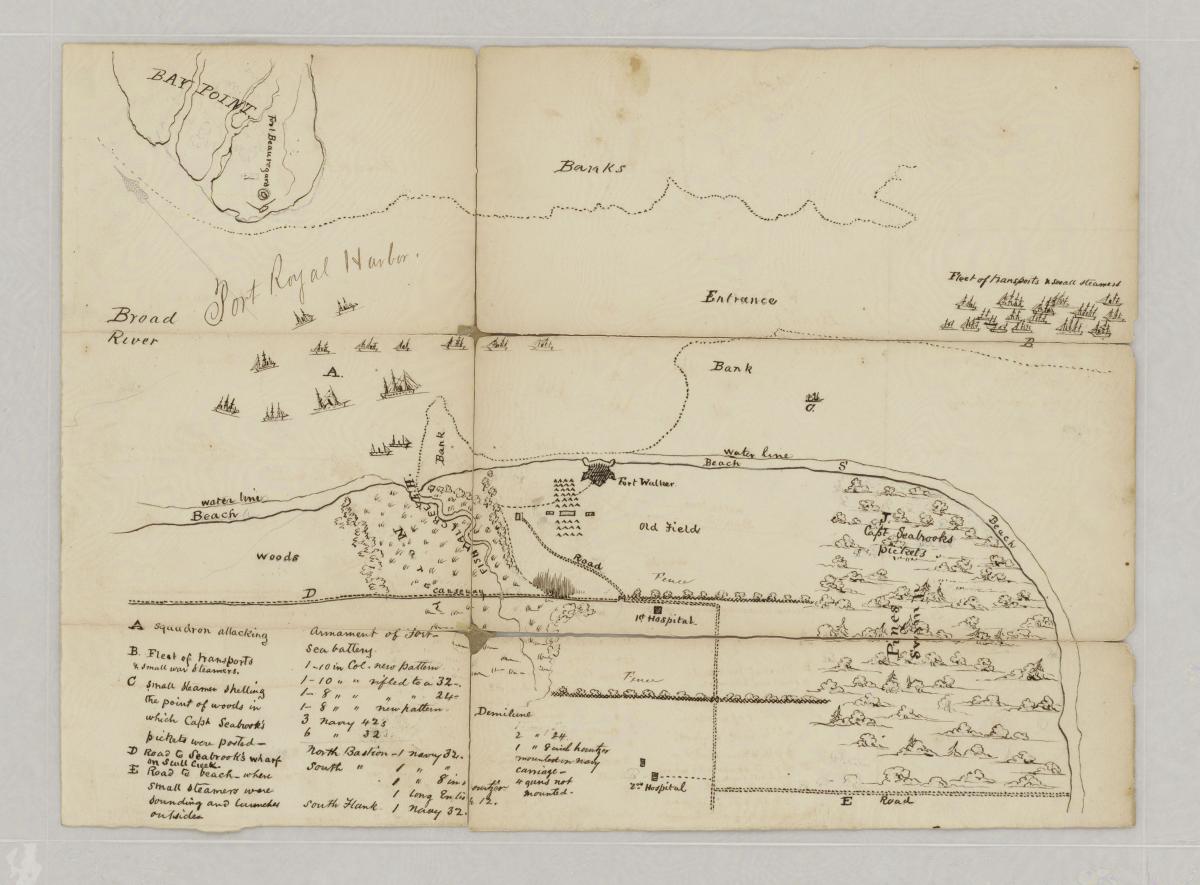 BAY POINT.
Fort Beauregard
Banks
Port Royal Harbor.
Fleet of transports & small steamers
Entrance
Broad
River
B
A.
Bank
C.
Bank
water line
Beach
S
water line
Beach
H.
FISH HALL CREEK
Fort Walker
Old Field
J.
Capt. Seabrooks
pickets
Beach
woods
Road
Fence
D
causeway
1st Hospital
Pines
Fence
A Squadron attacking
B. Fleet of transports
& small war steamers.
C small steamer shelling
the point of woods in
which Capt Seabrook's
pickets were posted—
D Road to Seabrook's wharf
on Scull Creek.
E Road to beach—where
small steamers were
sounding and launches
outside
Armament of Fort—
Sea battery.
1-10 in Col. new pattern
1-10 " " rifled to a 32-
1- 8 " " " " 24-
1- 8 " " new pattern.
3 navy 42s
6 " 32s
North Bastion-1 navy 32.
South " 1 " "
1 " 8 in
1 Long
12.
South Flank 1 navy 32.
Demilune
2 " 24
1 " 8 inch howtzer
mounted on navy
carriage—
4 guns not
mounted.
2nd Hospital
E Road